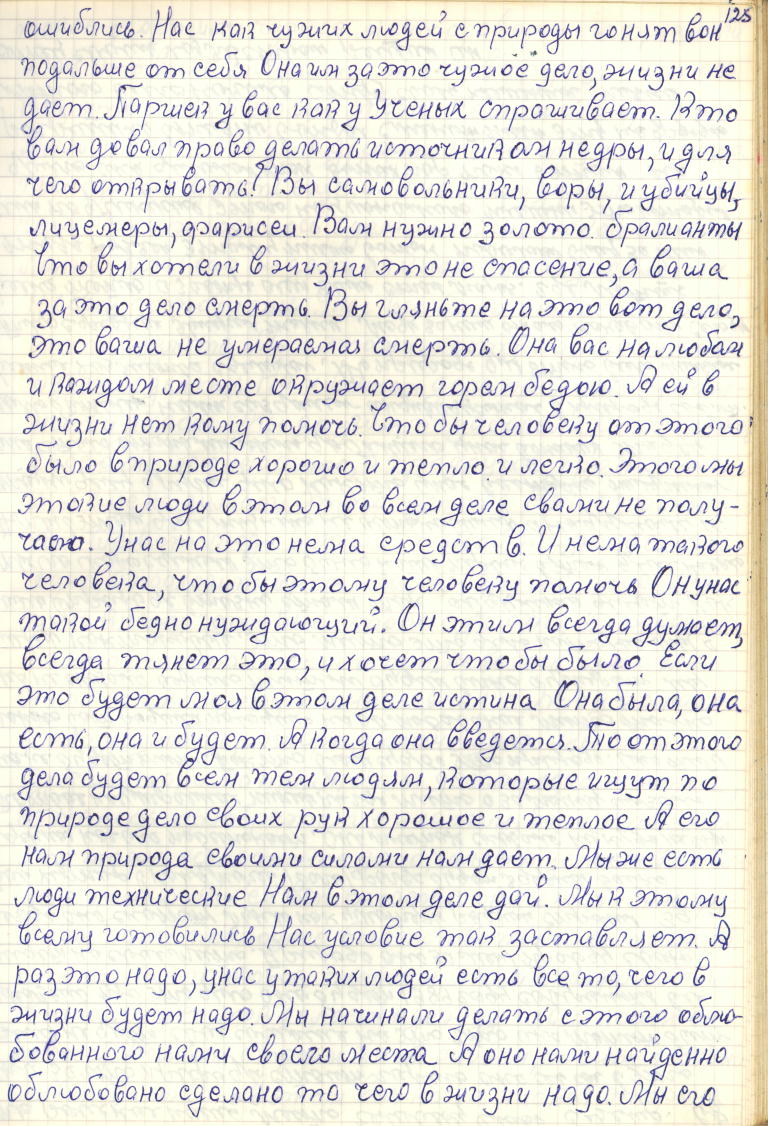 125
ошиблись. Нас как чужих людей с природы гонят вон
подальше от себя Она им за это чужое дело, жизни не
дает. Паршек у вас как у Ученых спрашивает. Кто
вам довал право делать источником недры, и для
чего открывать? Вы самовольники, воры, и убийцы,
лицемеры, фарисеи. Вам нужно золото. бралианты
Что вы хотели в жизни это не спасение, а ваша
за это дело смерть. Вы гляньте на это вот дело,
это ваша не умераемая смерть. Она вас на любом
и каждом месте окружает горем бедою. А ей в
жизни нет кому помочь. Что бы человеку от этого
было в природе хорошо и тепло и легко. Этого мы
этакие люди в этом во всем деле свами не полу-
чаем. У нас на это нема средств. И нема такого
человека, что бы этому человеку помочь Он у нас
такой бедно нуждающий. Он этим всегда думает,
всегда тянет это, и хочет что бы было Если
это будет моя в этом деле истина Она была, она
есть, она и будет. А когда она введется. То от этого
дела будет всем тем людям, которые ищут по
природе дело своих рук хорошое и теплое А его
нам природа своими силами нам дает. Мы же есть
люди технические Нам в этом деле дай. Мы к этому
всему готовились Нас условие так заставляет. А
раз это надо, у нас у таких людей есть все то, чего в
жизни будет надо. Мы начинали делать с этого облю-
бованного нами своего места А оно нами найденно
облюбовано сделано то чего в жизни надо. Мы его